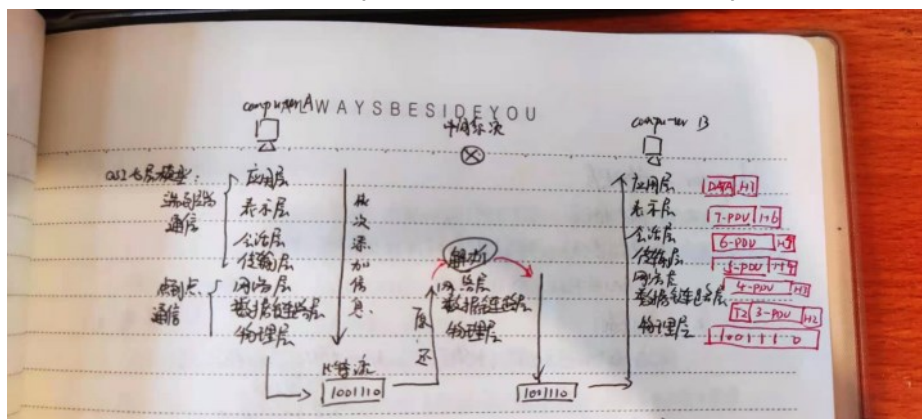 computer A
ALWAYSBESIDEYOU
中间系统
computer B
OSI七层模型:
应用层
表示层
会话层
传输层
网络层
数据链路层
物理层
端到端
通信
点到点
通信
依次添加信息
比特流
1001110
还
解析
网络层
数据链路层
物理层
1001110
应用层
表示层
会话层
传输层
网络层
数据链路层
物理层
DATA H7
7-PDU H6
6-PDU H5
5-PDU H4
4-PDU H3
T2 3-PDU H2
1001110